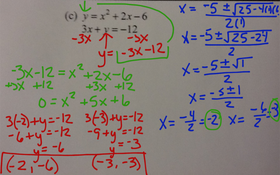 (c) y = x² + 2x - 6
3x + y = -12
-3x -3x
y = -3x-12
-3x-12 = x² + 2x - 6
+3x +12 +3x +12
0 = x² + 5x + 6
3(-2)+y=-12
-6+y=-12
y=-6
(-2, -6)
3(-3)+y=-12
-9+y=-12
y=-3
(-3, -3)
x = -5 ± √25-4(1)(6)
2(1)
x = -5 ± √25-24
2
x = -5 ± √1
2
x = -5 ± 1
2
x = -4/2 = -2 x = -6/2 = -3